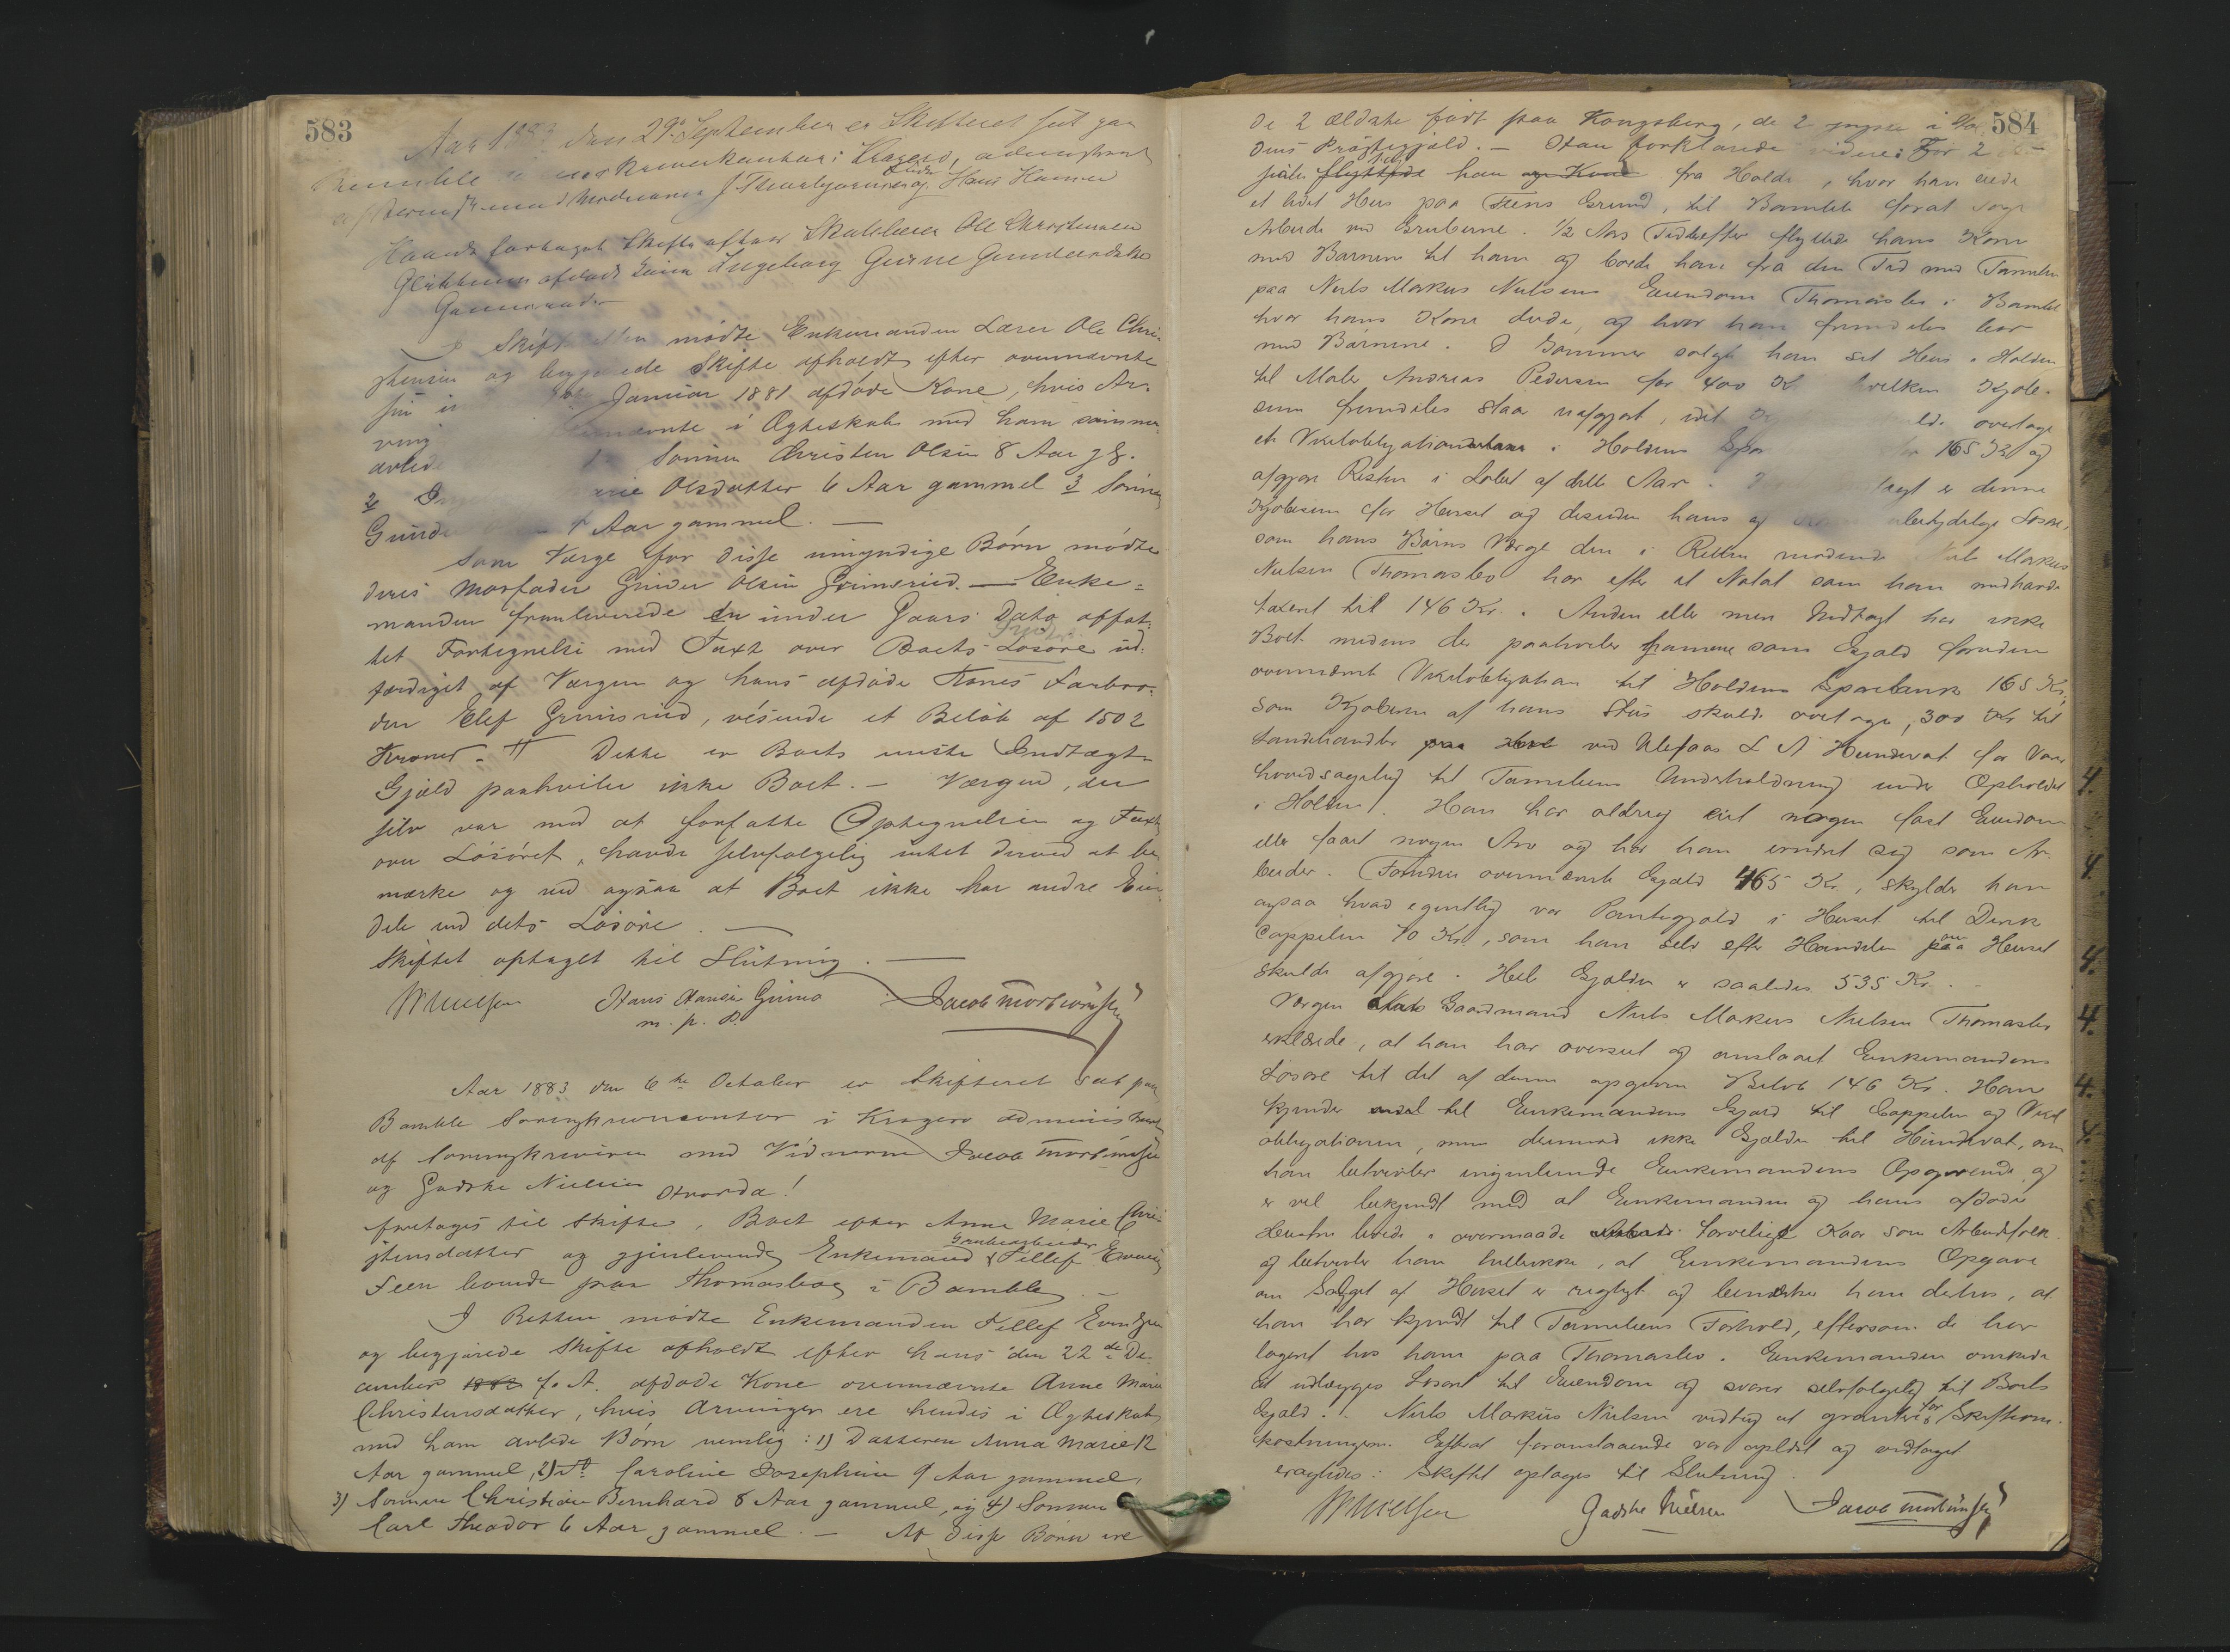 583
Aar 1883 den 29de September er Skifteret sat paa
Bamble Sorenskriverkontor i Kragerø, administreret
af
Haands foretaget Skifte efter Skolelærer Ole Christensen
afdøde Ingeborg Gurine Gundersdatter
I Skifteretten mødte Enkemanden Lærer Ole Chri-
stensen og begjærede Skifte afholdt efter ovennævnte
sin Januar 1881 afdøde Kone, hvis Ar-
ving i Ægteskab med ham sammen
avlede Sønnen Christen Olsen 8 Aar gl.
2 Olsdatter 6 Aar gammel 3 Sønnen
Gunder Aar gammel. —
Som Værge for disse umyndige Børn mødte
deres Morfader Gunder Olsen Grimsrud. — Enke-
manden fremleverede en under Gaars Dato affat-
tet Fortegnelse med Taxt over Boets Løsøre ud-
færdiget af Værgen og hans afdøde Kones Farbro-
der Elef Grimsrud, visende et Beløb af 1502
Kroner. Dette er Boets eneste Indtægt.
Gjæld paahviler ikke Boet. — Værgen, der
selv var med at forfatte Optegnelsen og Taxten
over Løsøret, havde selvfølgelig intet derved at be-
mærke og ved ogsaa at Boet ikke har andre Eien-
dele end dets Løsøre. —
Skiftet optaget til Slutning. —
Hans Hansen Jacob Mortensen
m. p. P.
Aar 1883 den 6te October er Skifteret sat paa
Bamble Sorenskrivercontor i Kragerø administreret
af Sorenskriveren med Vidnerne Jacob Mortensen
og Gadske Nielsen
Hvorda!
foretages til Skifte, Boet efter Anne Marie Chri-
Grubearbeider
stensdatter og gjenlevende Enkemand Tellef Evensen
Feen boende paa Thomasbog i Bamble. —
I Retten mødte Enkemanden Tellef Evensen
og begjærede Skifte afholdt efter hans den 22de De-
cember 1882 f. A. afdøde Kone ovennævnte Anne Marie
Christensdatter, hvis Arvinger ere hendes i Ægteskab
med ham avlede Børn nemlig: 1) Datteren Anna Marie 12
Aar gammel, 2) Do Caroline Josephine 9 Aar gammel,
3) Sønnen Christian Bernhard 8 Aar gammel, og 4) Sønnen
Carl Theodor 6 Aar gammel. — Af disse Børn ere
584
de 2 ældste født paa Kongsberg, de 2 yngste i Hol-
dens Præstegjæld. — Han forklarede videre: For 2
siden flyttede han og Kone fra Holden, hvor han eiede
et lidet Hus paa Feens Grund, til Bamble forat søge
Arbeide ved Gruberne. 1/2 Aars Tid derefter flyttede hans Kone
med Børnene til ham og boede han fra den Tid med Familien
paa Niels Markus Nielsens Eiendom Thomasbo i Bamble
hvor hans Kone døde, og hvor han fremdeles bor
med Børnene. I Sommer solgte han sit Hus i Holden
til Maler Andreas Pedersen for 400 K hvilken Kjøbe-
sum fremdeles staar uafgjort, idet overtage
en Vexelobligation i Holdens 165 Kr og
afgjøre Resten i Løbet af dette Aar. er denne
Kjøbesum for Huset og desuden hans ubetydelige Løsøre,
som hans Børns Værge den i Retten mødende Niels Markus
Nielsen Thomasbo har efter et Notat som han medhavde
taxeret til 146 Kr. Anden eller mere Indtægt har ikke
Boet medens der paahviler samme som Gjæld foruden
ovennævnte Vexelobligation til Holdens Sparebank 165 Kr,
som Kjøberen af hans Hus skulde overtage, 300 Kr til
Landhandler paa ved Ulefos L N Hundevat for Varer
hovedsagelig til Familiens Underholdning under Opholdet
i Holden. Han har aldrig eiet nogen fast Eiendom
eller faaet nogen Arv og har han ernæret sig som Ar-
beider. Foruden ovennævnte Gjæld 465 Kr, skylder han
ogsaa hvad egentlig var Pantegjæld i Huset til Dirik
Cappelen 70 Kr, som han selv efter Handelen om Huset
skulde afgjøre. Hele Gjælden er saaledes 535 Kr. —
Værgen Gaardmand Niels Markus Nielsen Thomasbo
erklærede, at han har overseet og anslaaet Enkemandens
Løsøre til det af denne opgivne Beløb 146 Kr. Han
kjender til Enkemandens Gjæld til Cappelen og Vexel
obligationen, men derimod ikke Gjælden til Hundevat, om
han betvivler ingenlunde Enkemandens Opgivende og
er vel bekjendt med at Enkemanden og hans afdøde
Hustru levede i overmaade tarvelige Kaar som Arbeidsfolk
og betvivler han hellerikke, at Enkemandens Opgave
om Salget af Huset er rigtigt og bemærker han derhos, at
han har kjendt til Familiens Forhold, eftersom de har
logeret hos ham paa Thomasbo. Enkemanden ønskede
at udlægges Løsøret til Eiendom og svarer selvfølgelig til Boets
Gjæld. Niels Markus Nielsen vedtog at garantere for Skifteom-
kostningerne. Efterat foranstaaende var oplæst og vedtaget
eragtedes: Skiftet optages til Slutning.
Gadske Nielsen Jacob Mortensen
4.
4.
4.
4.
4.
4.